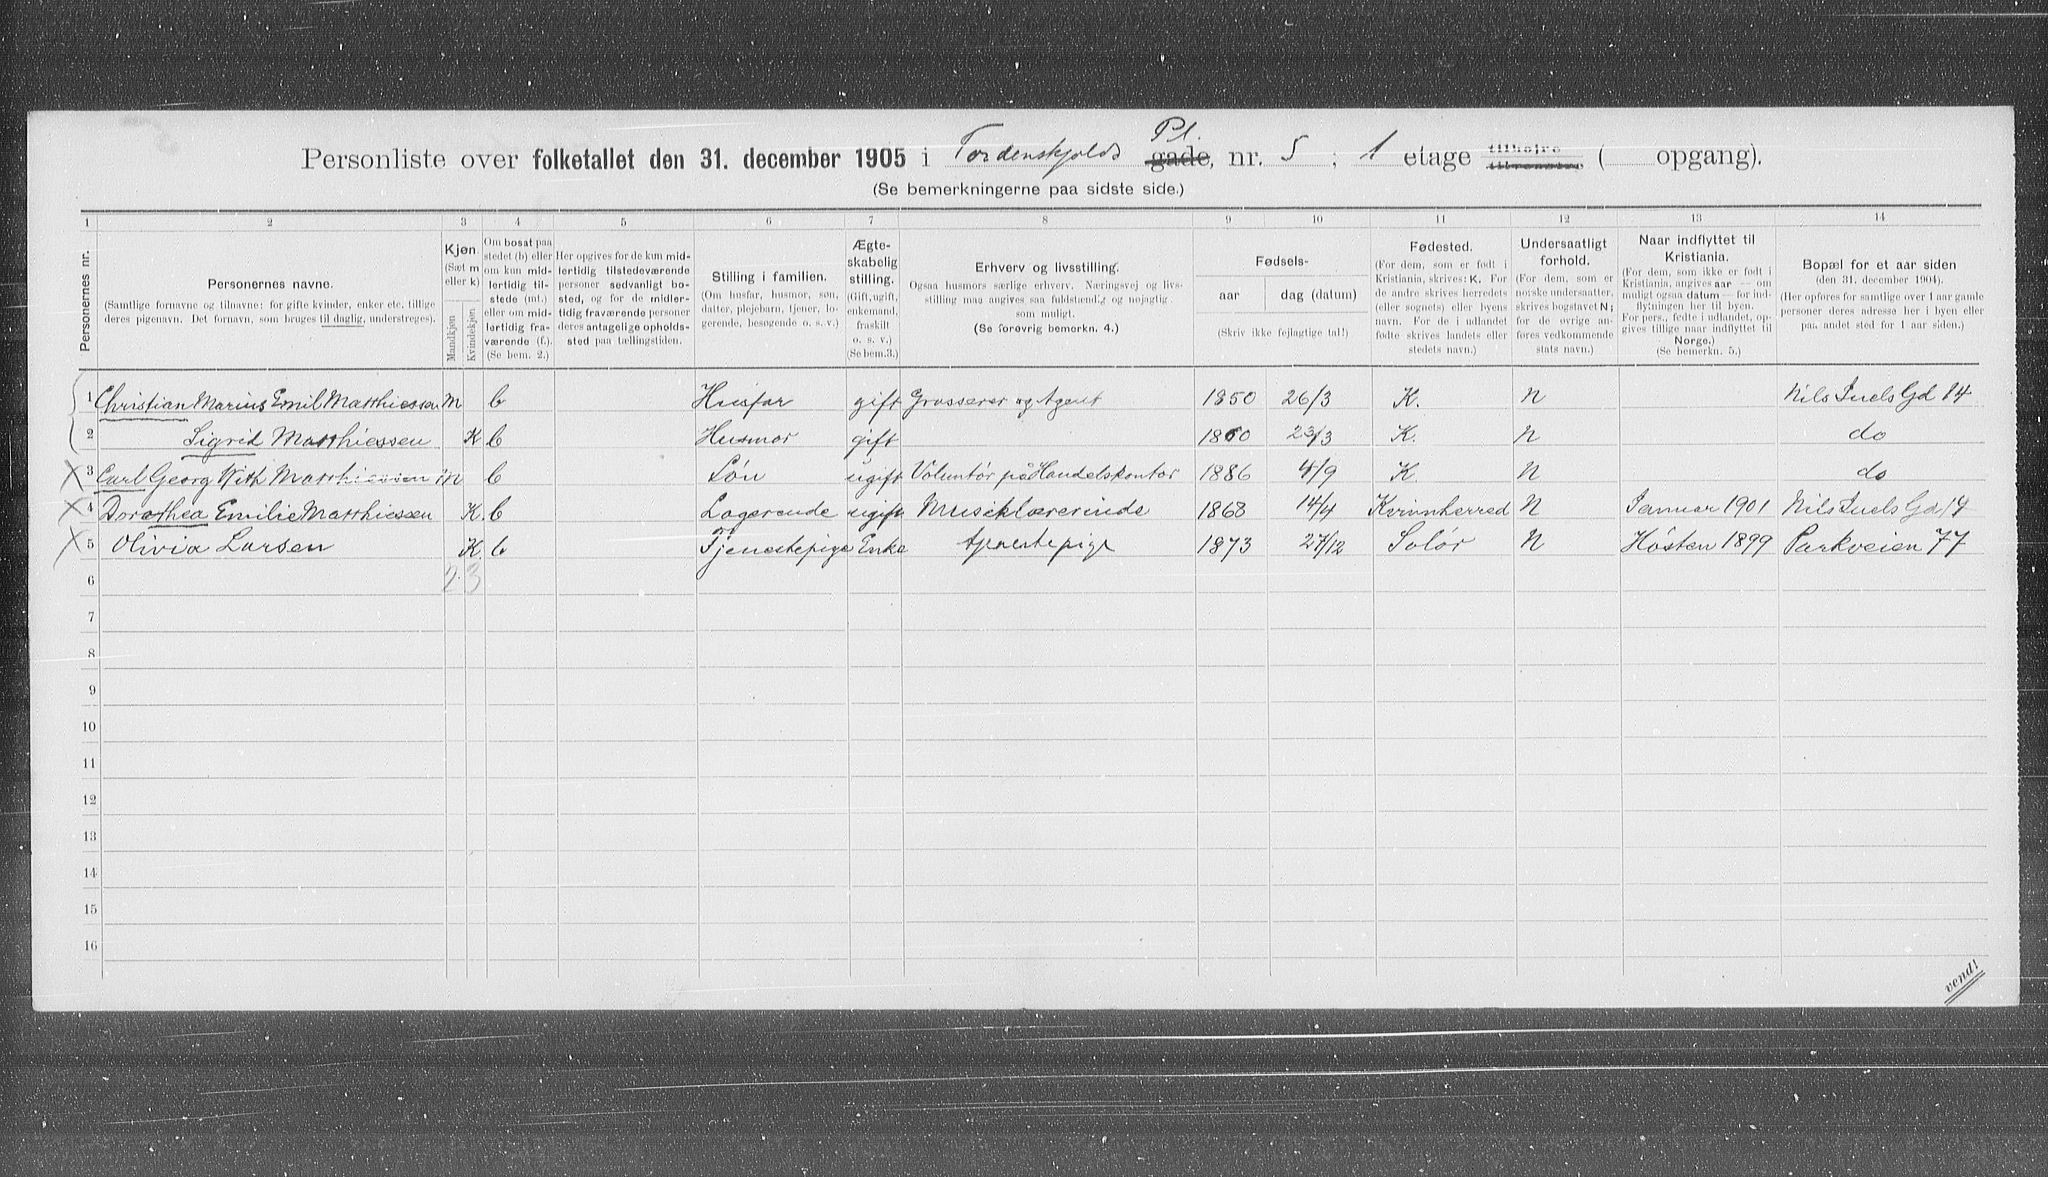 Personliste over folketallet den 31. december 1905 i Tordenskjolds Pl. gade, nr. 5 ; 1 etage tilhøjre tilvenstre ( opgang).
(Se bemerkningerne paa sidste side.)
1 2 3 4 5 6 7 8 9 10 11 12 13 14
Personernes nr.
Personernes navne.
(Samtlige fornavne og tilnavne: for gifte kvinder, enker etc. tillige
deres pigenavn. Det fornavn, som bruges til daglig, understreges).
Kjøn.
(Sæt m
eller k)
Mandkjøn
Kvindekjøn.
Om bosat paa
stedet (b) eller
om kun mid-
lertidig til-
stede (mt.)
eller om mid-
lertidig fra-
værende (f.).
(Se bem. 2.)
Her opgives for de kun mid-
lertidig tilstedeværende
personer sedvanligt bo-
sted, og for de midler-
tidig fraværende personer
deres antagelige opholds-
sted paa tællingstiden.
Stilling i familien.
(Om husfar, husmor, søn,
datter, plejebarn, tjener, lo-
gerende, besøgende o. s. v.)
Ægte-
skabelig
stilling.
(Gift, ugift,
enkemand,
fraskilt
o. s. v.)
(Se bem.3.)
Erhverv og livsstilling.
Ogsaa husmors særlige erhverv. Næringsvej og livs-
stilling maa angives saa fuldstændig og nøjagtig.
som muligt.
(Se forøvrig bemerkn. 4.)
Fødsels-
aar
dag (datum)
(Skriv ikke fejlagtige tal!)
Fødested.
(For dem, som er født i
Kristiania, skrives: K. For
de andre skrives herredets
(eller sognets) eller byens
navn. For de i udlandet
fødte skrives landets eller
stedets navn.)
Undersaatligt
forhold.
(For dem, som er
norske undersaatter,
skrives bogstavet N;
for de øvrige an-
føres vedkommende
stats navn.)
Naar indflyttet til
Kristiania.
(For dem, som ikke er født i
Kristiania, angives aar — om
muligt ogsaa datum — for ind-
flytningen her til byen.
For pers., fødte i udlandet, op-
gives tillige naar indflyttet til
Norge.)
(Se bemerkn. 5.)
Bopæl for et aar siden
(den 31. december 1904).
(Her opføres for samtlige over 1 aar gamle
personer deres adresse her i byen eller
paa andet sted for 1 aar siden.)
1 Christian Marius Emil Matthiessen m b Husfar gift Grosserer og Agent 1850 26/3 K. N Nils Juels Gd 14
2 Sigrid Matthiessen K b Husmor gift 1860 23/3 K. N do
3 Carl Georg With Matthiessen m b Søn ugift Voluntør på Handelskontor 1886 4/9 K. N do
4 Dorothea Emilie Matthiessen K. b Logerende ugift Musiklærerinde 1868 14/4 Kvinnherred N Januar 1901 Nils Juels Gd 14
5 Olivia Larsen K b Tjenestepige Enke tjenestepige 1873 27/12 Solør N Høsten 1899 Parkveien 77
6 2 3
7
8
9
10
11
12
13
14
15
16
vend!